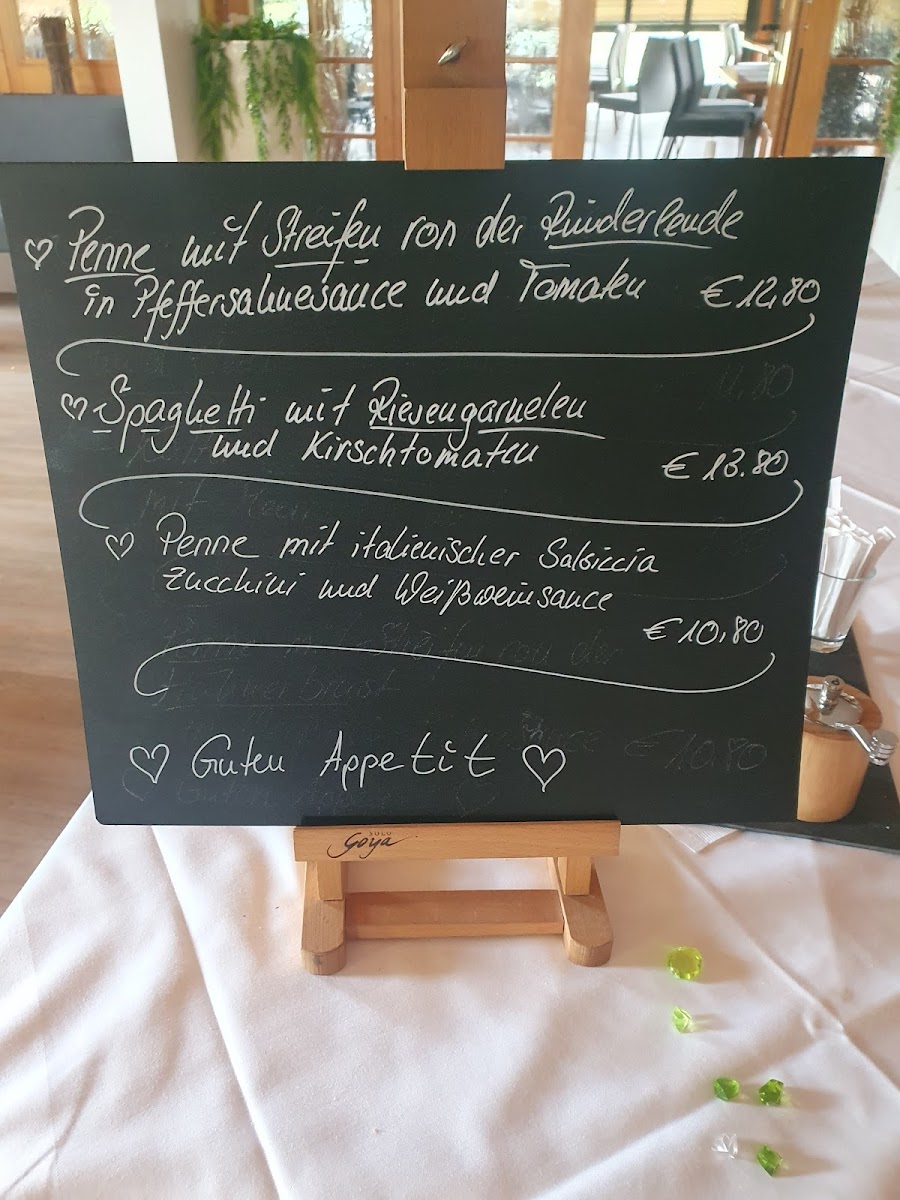 Penne mit Streifen von der Rinderlende
in Pfeffersahnesauce und Tomaten € 12,80
Spaghetti mit Riesengarnelen
und Kirschtomaten
€ 13.80
Penne mit italienischer Salsiccia
Zucchini und Weißweinsauce
€ 10,80
Guten Appetit
SOLO
Goya